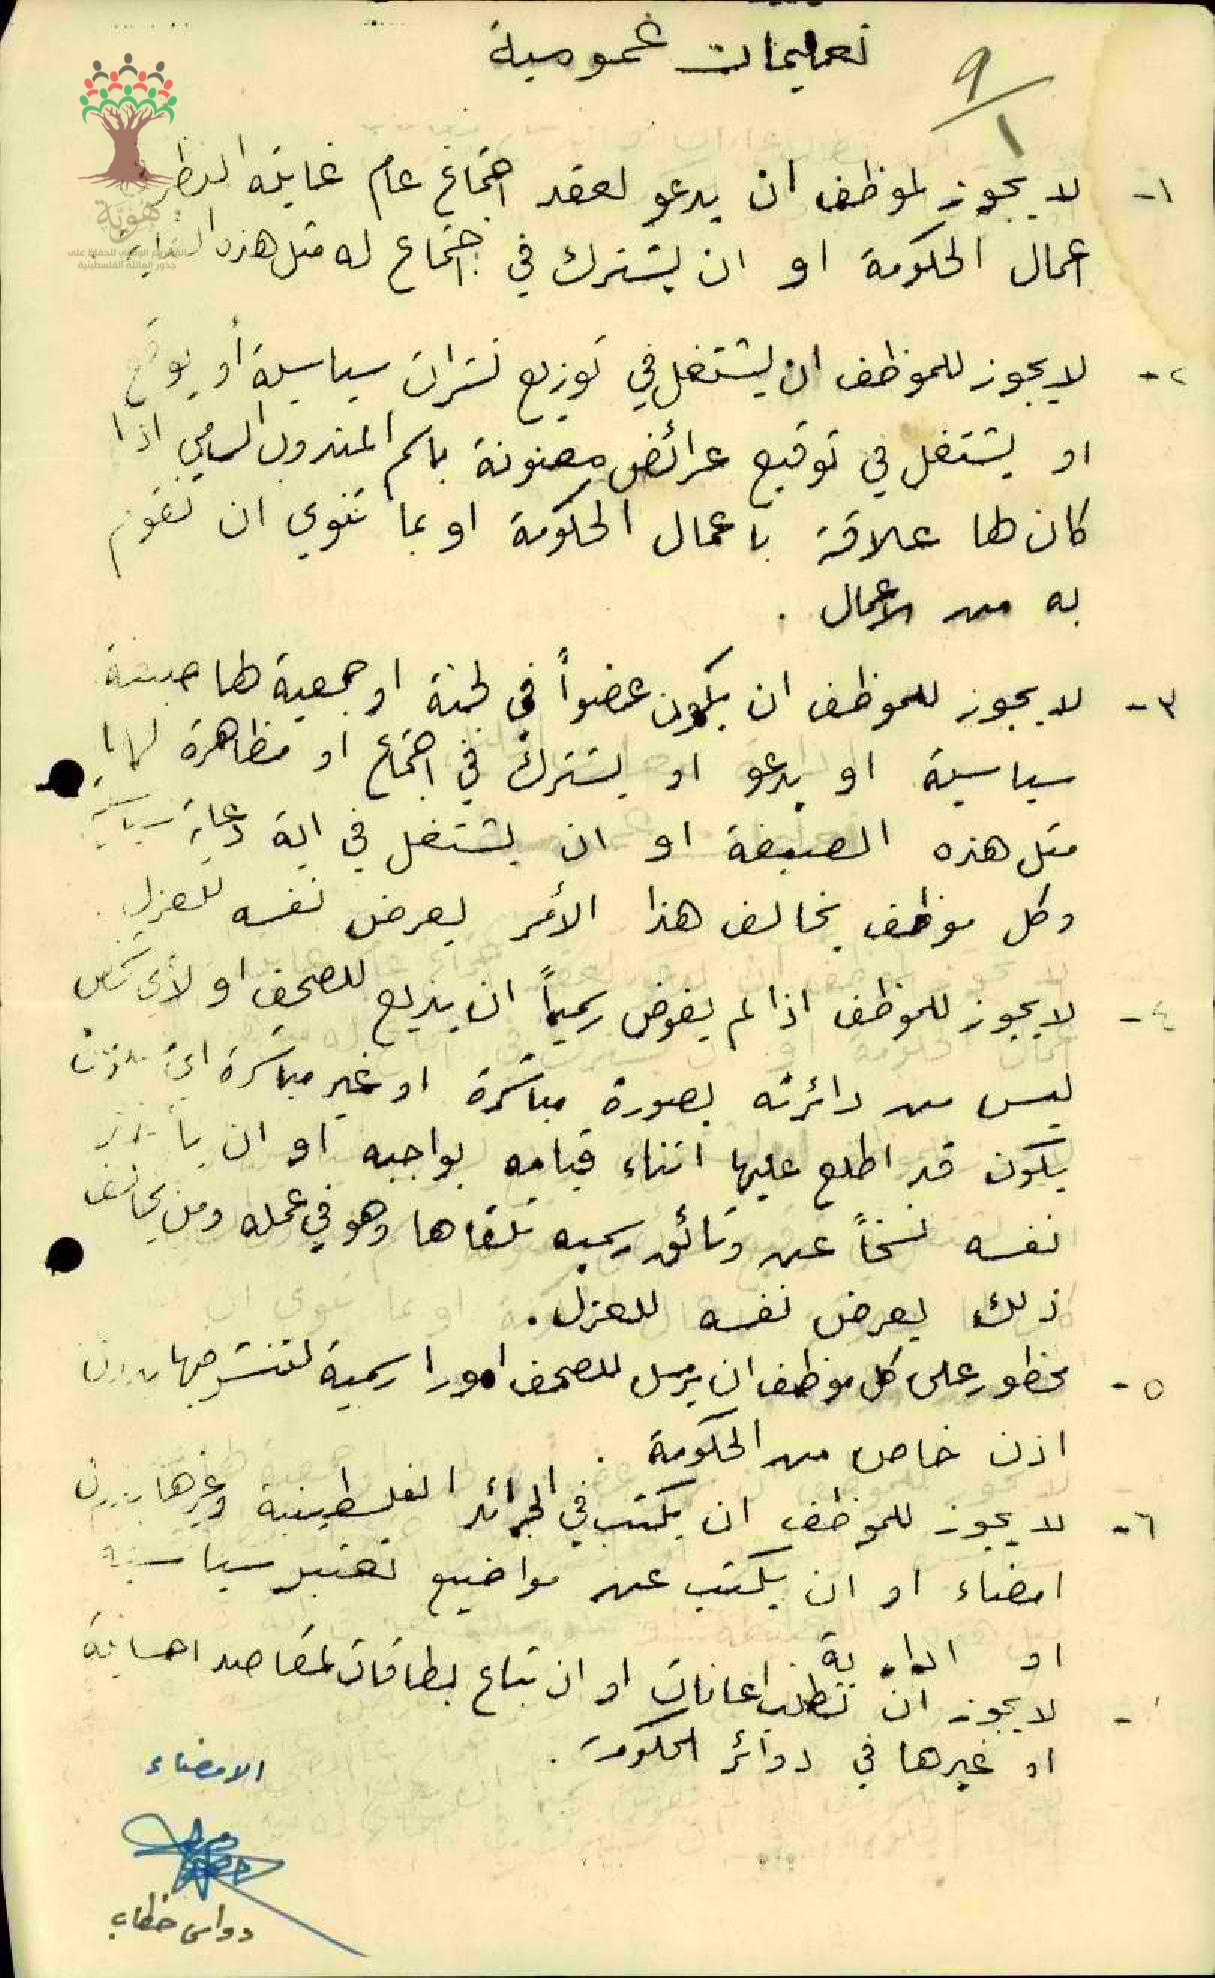 تعليمات عمومية
٩/١
١- لا يجوز لموظف ان يدعو لعقد اجتماع عام غايته النظر في
اعمال الحكومة او ان يشترك في اجتماع له مثل هذه الغاية
هوية
المشروع الوطني للحفاظ على
جذور العائلة الفلسطينية
٢- لا يجوز للموظف ان يشتغل في توزيع نشرات سياسية أو يوقع
او يشتغل في توقيع عرائض معنونة باسم المندوب السامي اذا
كان لها علاقة باعمال الحكومة او بما تنوي ان تقوم
به من الاعمال .
٣- لا يجوز للموظف ان يكون عضواً في لجنة او جمعية لها صبغة
سياسية او يدعو او يشترك في اجتماع او مظاهرة لها
مثل هذه الصبغة او ان يشتغل في اية دعاية سياسية
وكل موظف يخالف هذا الأمر يعرض نفسه للعزل .
٤- لا يجوز للموظف اذا لم يفوض رسمياً ان يذيع للصحف او لأي شخص
ليس من دائرته بصورة مباشرة او غير مباشرة اي
يكون قد اطلع عليها اثناء قيامه بواجبه او ان يأخذ
نفسه نسخاً عن وثائق رسميه تلقاها وهو في عمله ومن يخالف
ذلك يعرض نفسه للعزل .
٥- محظور على كل موظف ان يرسل للصحف امورا رسمية لتنشرها بدون
اذن خاص من الحكومة .
٦- لا يجوز للموظف ان يكتب في الجرائد الفلسطينية وغيرها بدون
امضاء او ان يكتب عن مواضيع تعتبر سياسية
او
- لا يجوز ان تطلب اعانات او ان تباع بطاقات لمقاصد احسانية
او غيرها في دوائر الحكومة .
الامضاء
خطاب